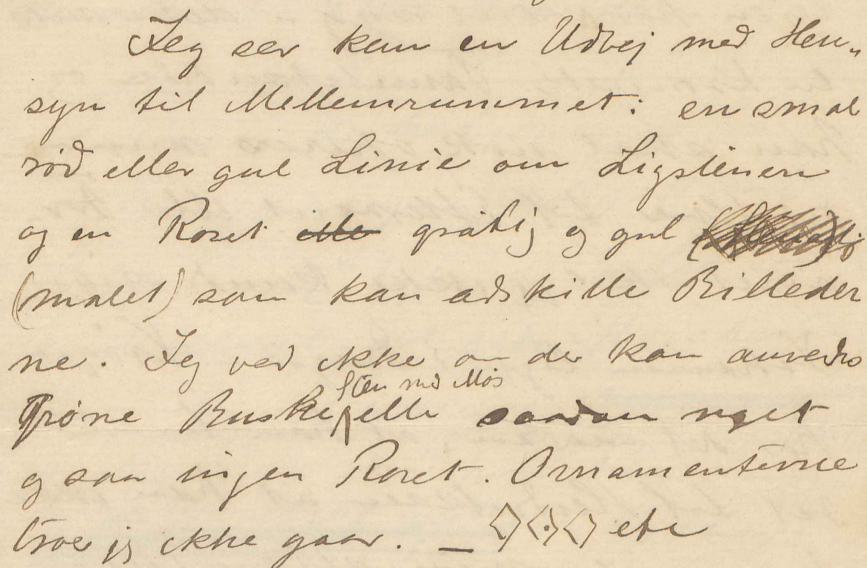 Jeg seer kun en Udvej med Hen„
syn til Mellemrummet: en smal
rød eller gul Linie om Ligstenen
og en Roset gråtig og gul
(malet) som kan adskille Billeder
ne. Jeg ved ikke om der kan anvendes
Grøne Buske, Sten med Mos eller saadan noget
og saa ingen Roset. Ornamenterne
troer jeg ikke gaar. — etc